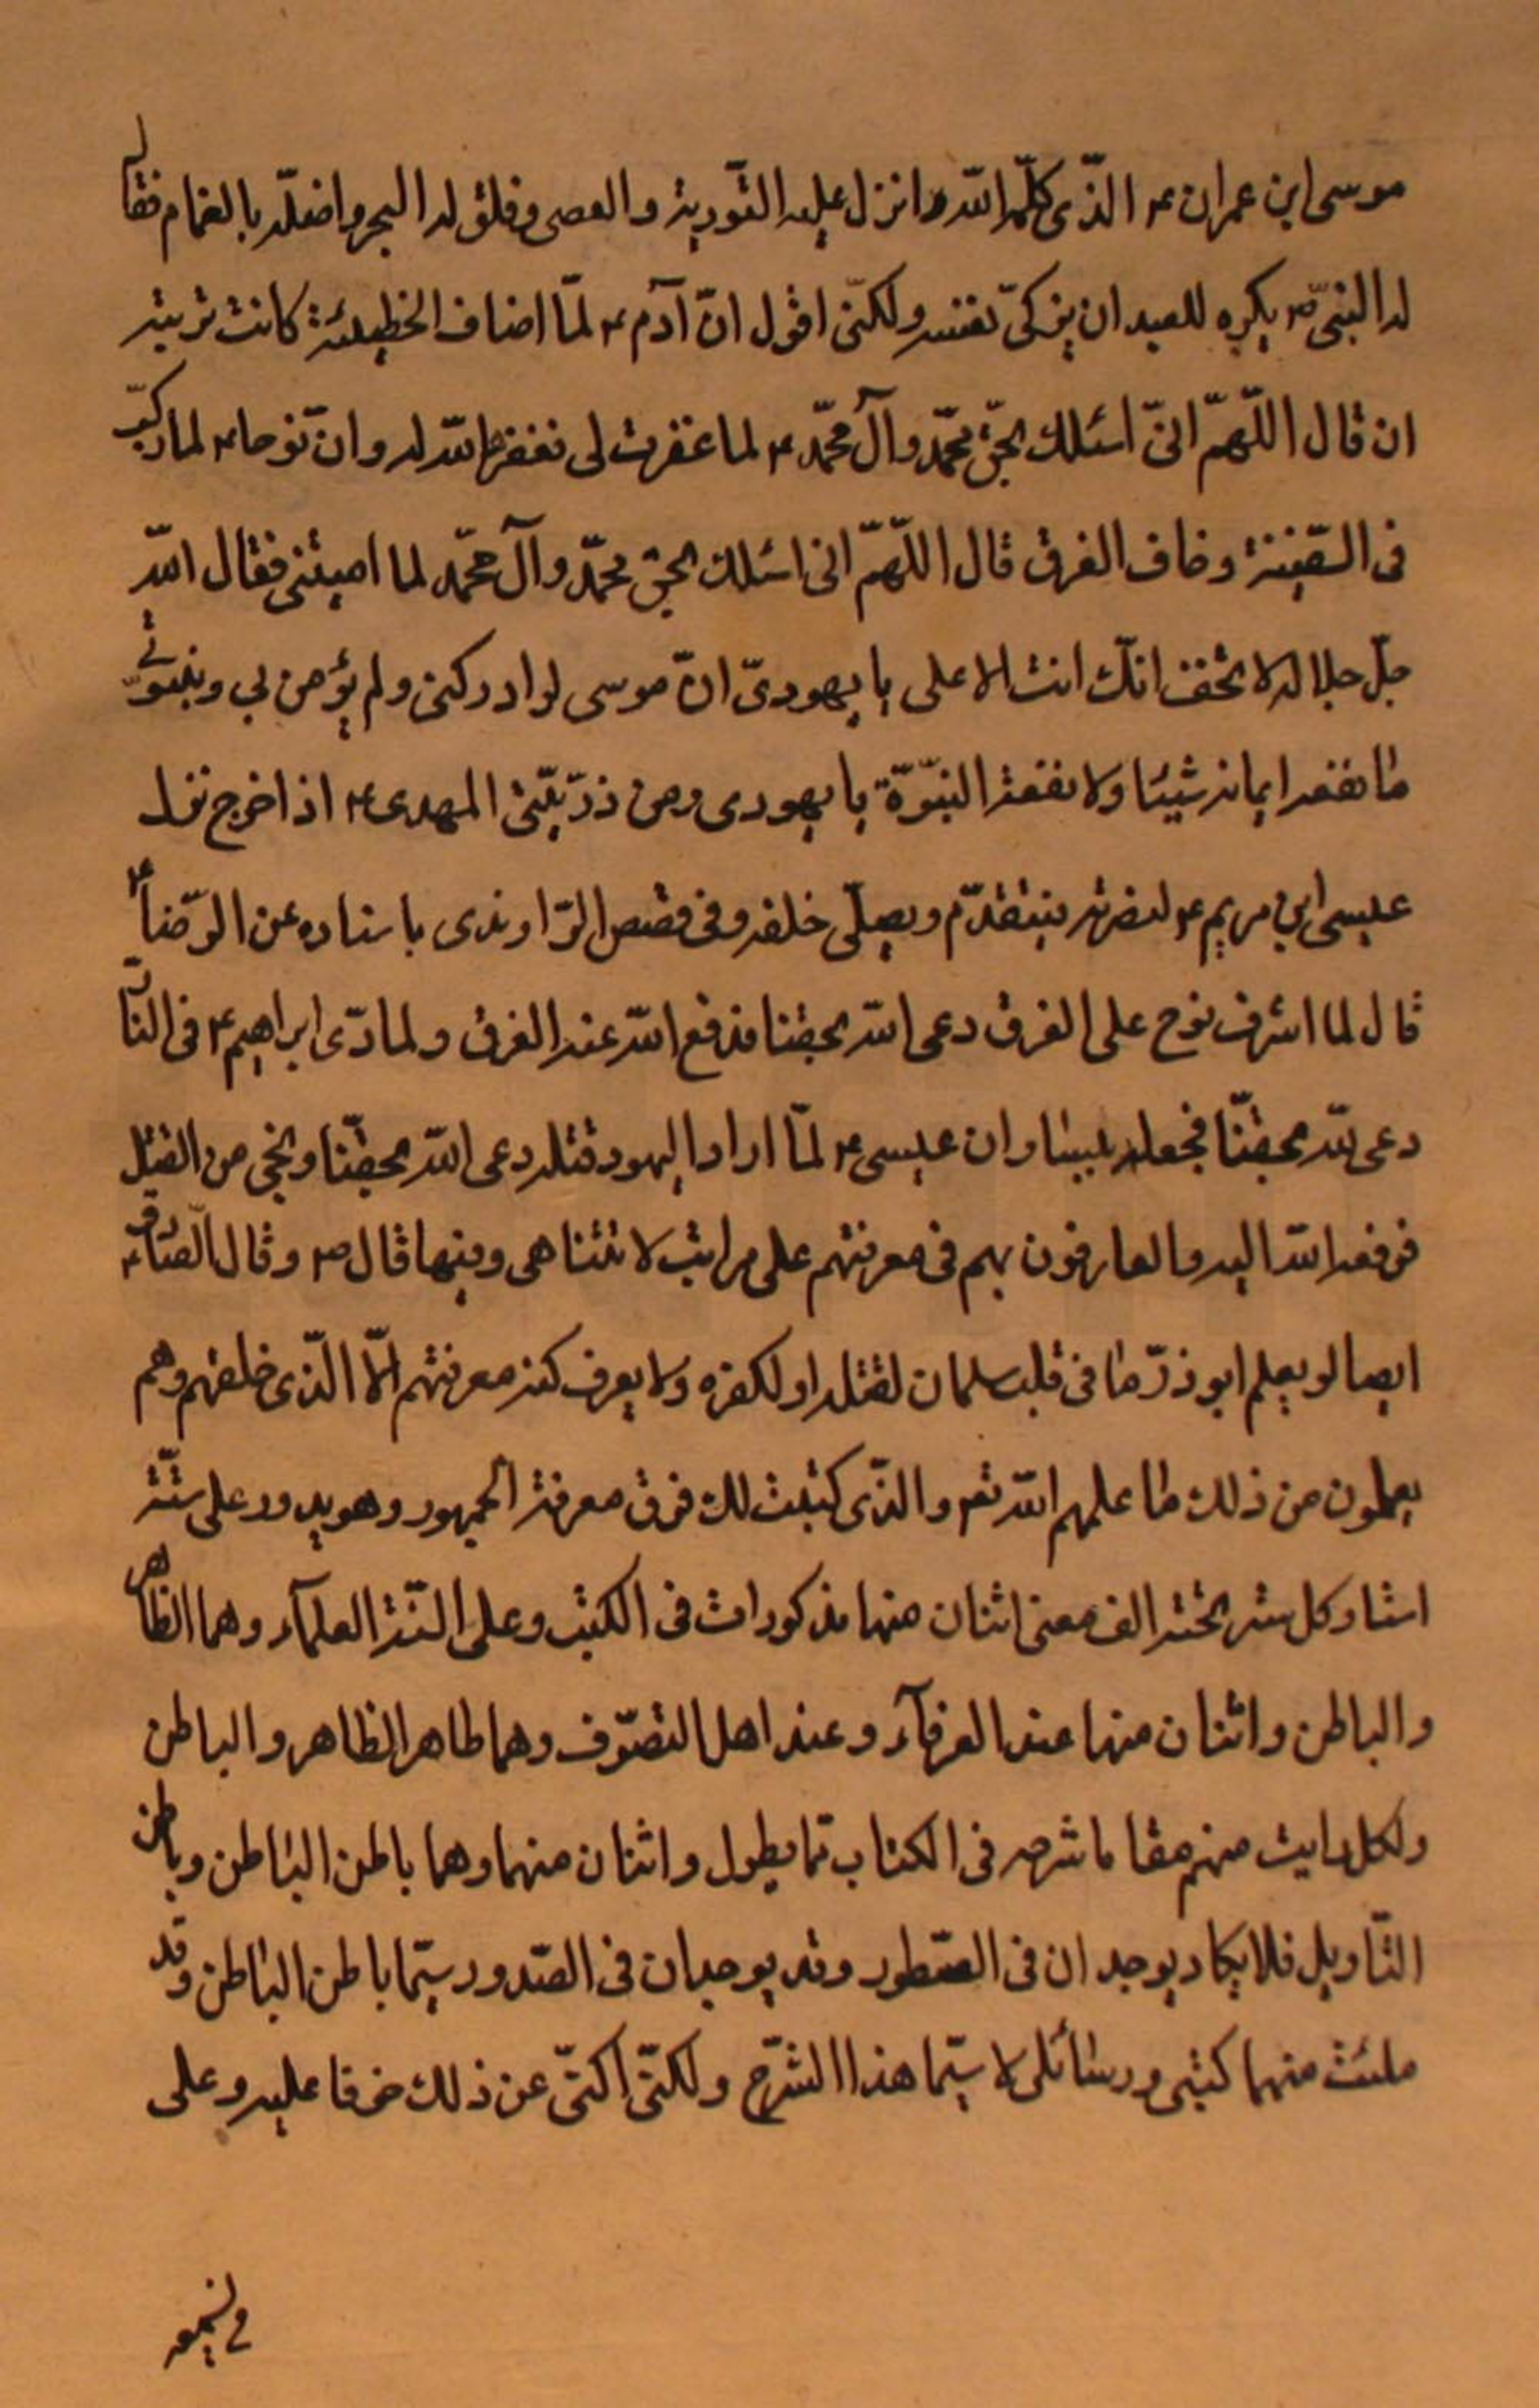 موسى ابن عمران ع الذّى كلّمه اللّه و انزل عليه التّورية و العصى و فلق له البحر و اضلّه بالغمام فقال
له النبىّ ص يكره للعبد ان يزكىّ نفسه و لكنّى اقول انّ آدم ع لمّا اضاف الخطيئة كانت توبته
ان قال اللّهمّ انىّ اسئلك بحقّ محمّد و آل محمّد ع لما غفرت لى فغفرها اللّه له و انّ نوحا ع لما ركب
فى السّفينة و خاف الغرق قال اللّهمّ انى اسئلك بحق محمّد و آل محمّد لما امنيتنى فقال اللّه
جلّ جلاله لا تخف انّك انت الاعلى يا يهودىّ انّ موسى لو ادركنى و لم يؤمن بى و بنبوّتى
ما نفعه ايمانه شيئا و لا نفعته النبّوّة يا يهودى و من ذرّيّتى المهدى ع اذا خرج نزل
عيسى ابن مريم ع لنصرته فيتقدّم و يصلّى خلفه و فى قصص الرّاوندى باسناده عن الرّضا ع
قال لما اشرف نوح على الغرق دعى اللّه بحقنا فدفع اللّه عنه الغرق و لما رمى ابراهيم ع فى النّار
دعى اللّه بحقّنا فجعله يبسا و ان عيسى ع لمّا اراد اليهود قتله دعى اللّه بحقّنا و نجى من القتل
فرفعه اللّه اليه و العارفون بهم فى معرفتهم على مراتب لا تتناهى و فيها قال ص و قال الصّادق ع
ايضا لو يعلم ابو ذرّ ما فى قلب سلمان لقتله او لكفره و لا يعرف كنه معرفتهم الّا الذّى خلقهم و هم
يعلمون من ذلك ما علمهم اللّه تع و الذّى كتبت لك فوق معرفة الجمهور و هو يدور على ستّة
اشا و كل ستر تحته الف معنى اثنان منها مذكورات فى الكتب و على السنة العلمآء و هما الظاهر
و الباطن و اثنان منها عند العرفآء و عند اهل التصوّف و هما ظاهر الظاهر و الباطن
و لكل رايت منهم مقاما شرحه فى الكتاب مما يطول و اثنان منهما و هما باطن الباطن و باطن
التّاويل فلا يكاد يوجد ان فى السّطور و قد يوجدان فى الصّدور سيّما باطن الباطن و قد
ملئت منهما كتبى و رسائلى لا سيّما هذا الشّرح و لكنّى اكنّى عن ذلك خوفا عليه و على